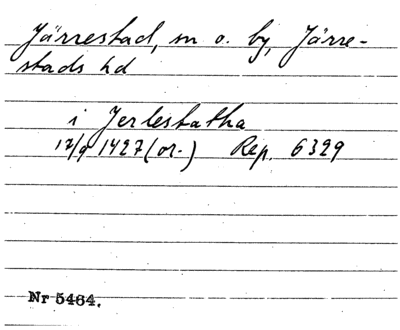 Järrestad, sn o. by, Järre-
stads hd
i Jerlestatha
12/9 1427 (or.) Rep. 6329
Nr 5484.